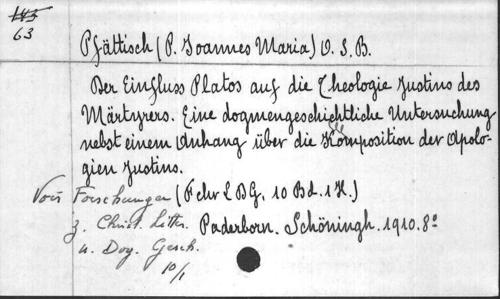 143
63
Pfättisch (P. Joannes Maria) O. S. B.
Der Einfluss Platos auf die Theologie Justins des
Märtyrers. Eine dogmengeschichtliche Untersuchung
nebst einem Anhang über die Komposition der Apolo-
gien Justins.
Voir Forschungen (FchrLDG. 10 Bd. 1 H.)
z. Christ. Litter. Paderborn. Schöningh. 1910. 8º
u. Dog. Gesch.
10/1